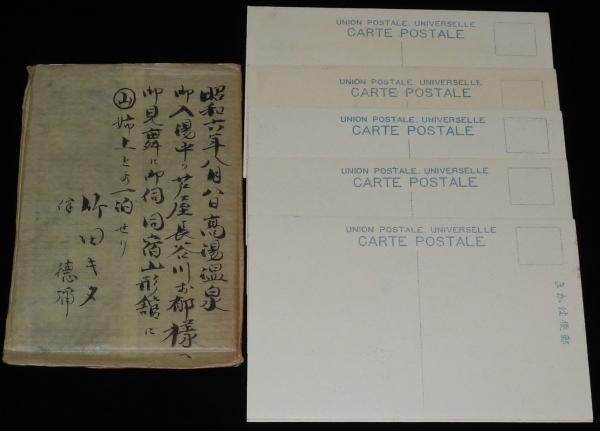 昭和六年八月八日高湯温泉
御入湯中の芦屋長谷川お都様へ
御見舞に御伺同宿山形舘に
山 姉上と共一泊せり
竹田キヌ
伜 徳
UNION POSTALE. UNIVERSELLE
CARTE POSTALE
UNION POSTALE. UNIVERSELLE
CARTE POSTALE
UNION POSTALE. UNIVERSELLE
CARTE POSTALE
UNION POSTALE. UNIVERSELLE
CARTE POSTALE
UNION POSTALE. UNIVERSELLE
CARTE POSTALE
きかは便郵